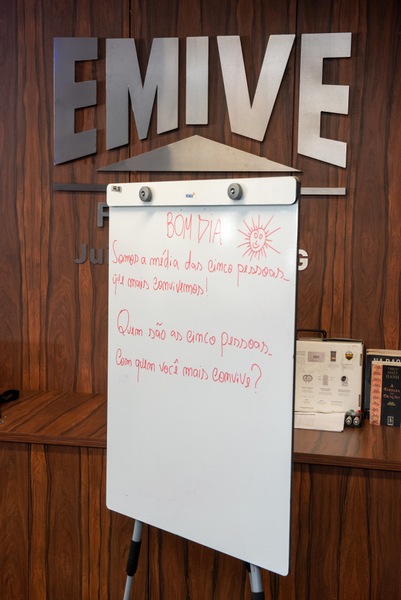 EMIVE
F
Ju
G
BOM DIA
Somos a média das cinco pessoas
que mais convivemos!
Quem são as cinco pessoas
Com quem você mais convive?